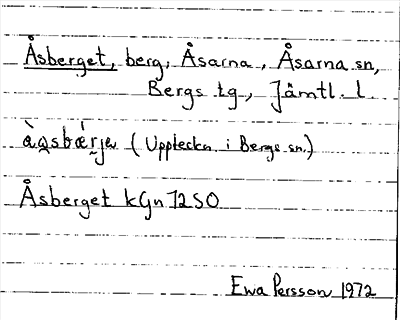 Åsberget, berg, Åsarna, Åsarna sn,
Bergs tg., Jämtl. l.
(Uppteckn. i Bergs sn.)
Åsberget kGn 72 SO
Ewa Persson 1972